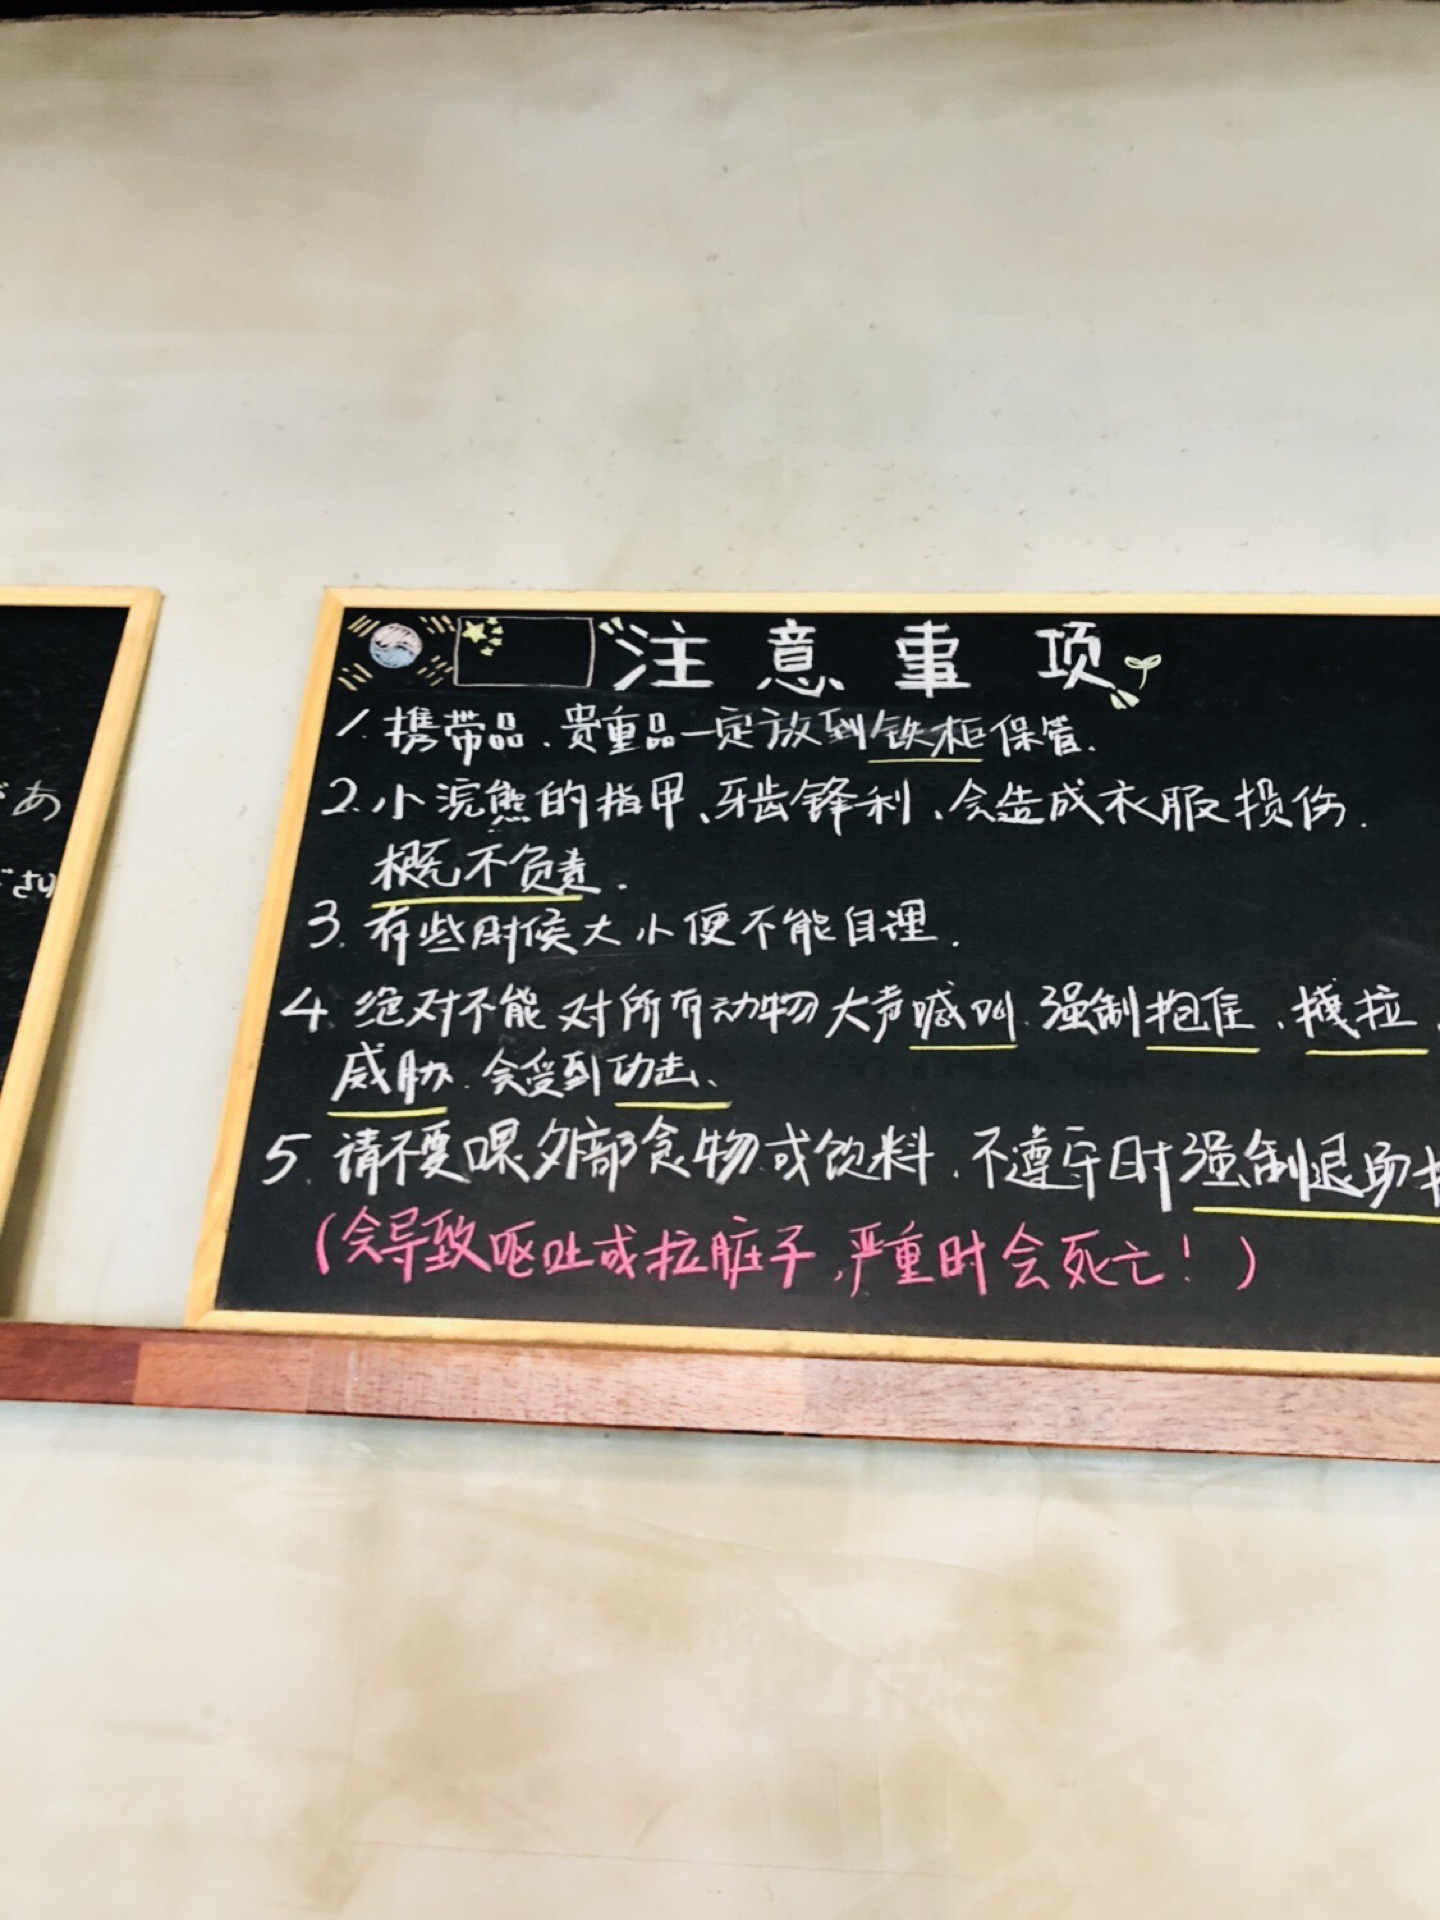 あ
注意事项
1. 携带品、贵重品一定放到铁柜保管.
2. 小浣熊的指甲、牙齿锋利、会造成衣服损伤.
概不负责.
3. 有些时候大小便不能自理.
4. 绝对不能对所有动物大声喊叫. 强制抱住、拽拉、
威胁. 会受到功击、
5. 请不要喂外部食物或饮料. 不遵守时强制退场
(会导致呕吐或拉脏子,严重时会死亡!)